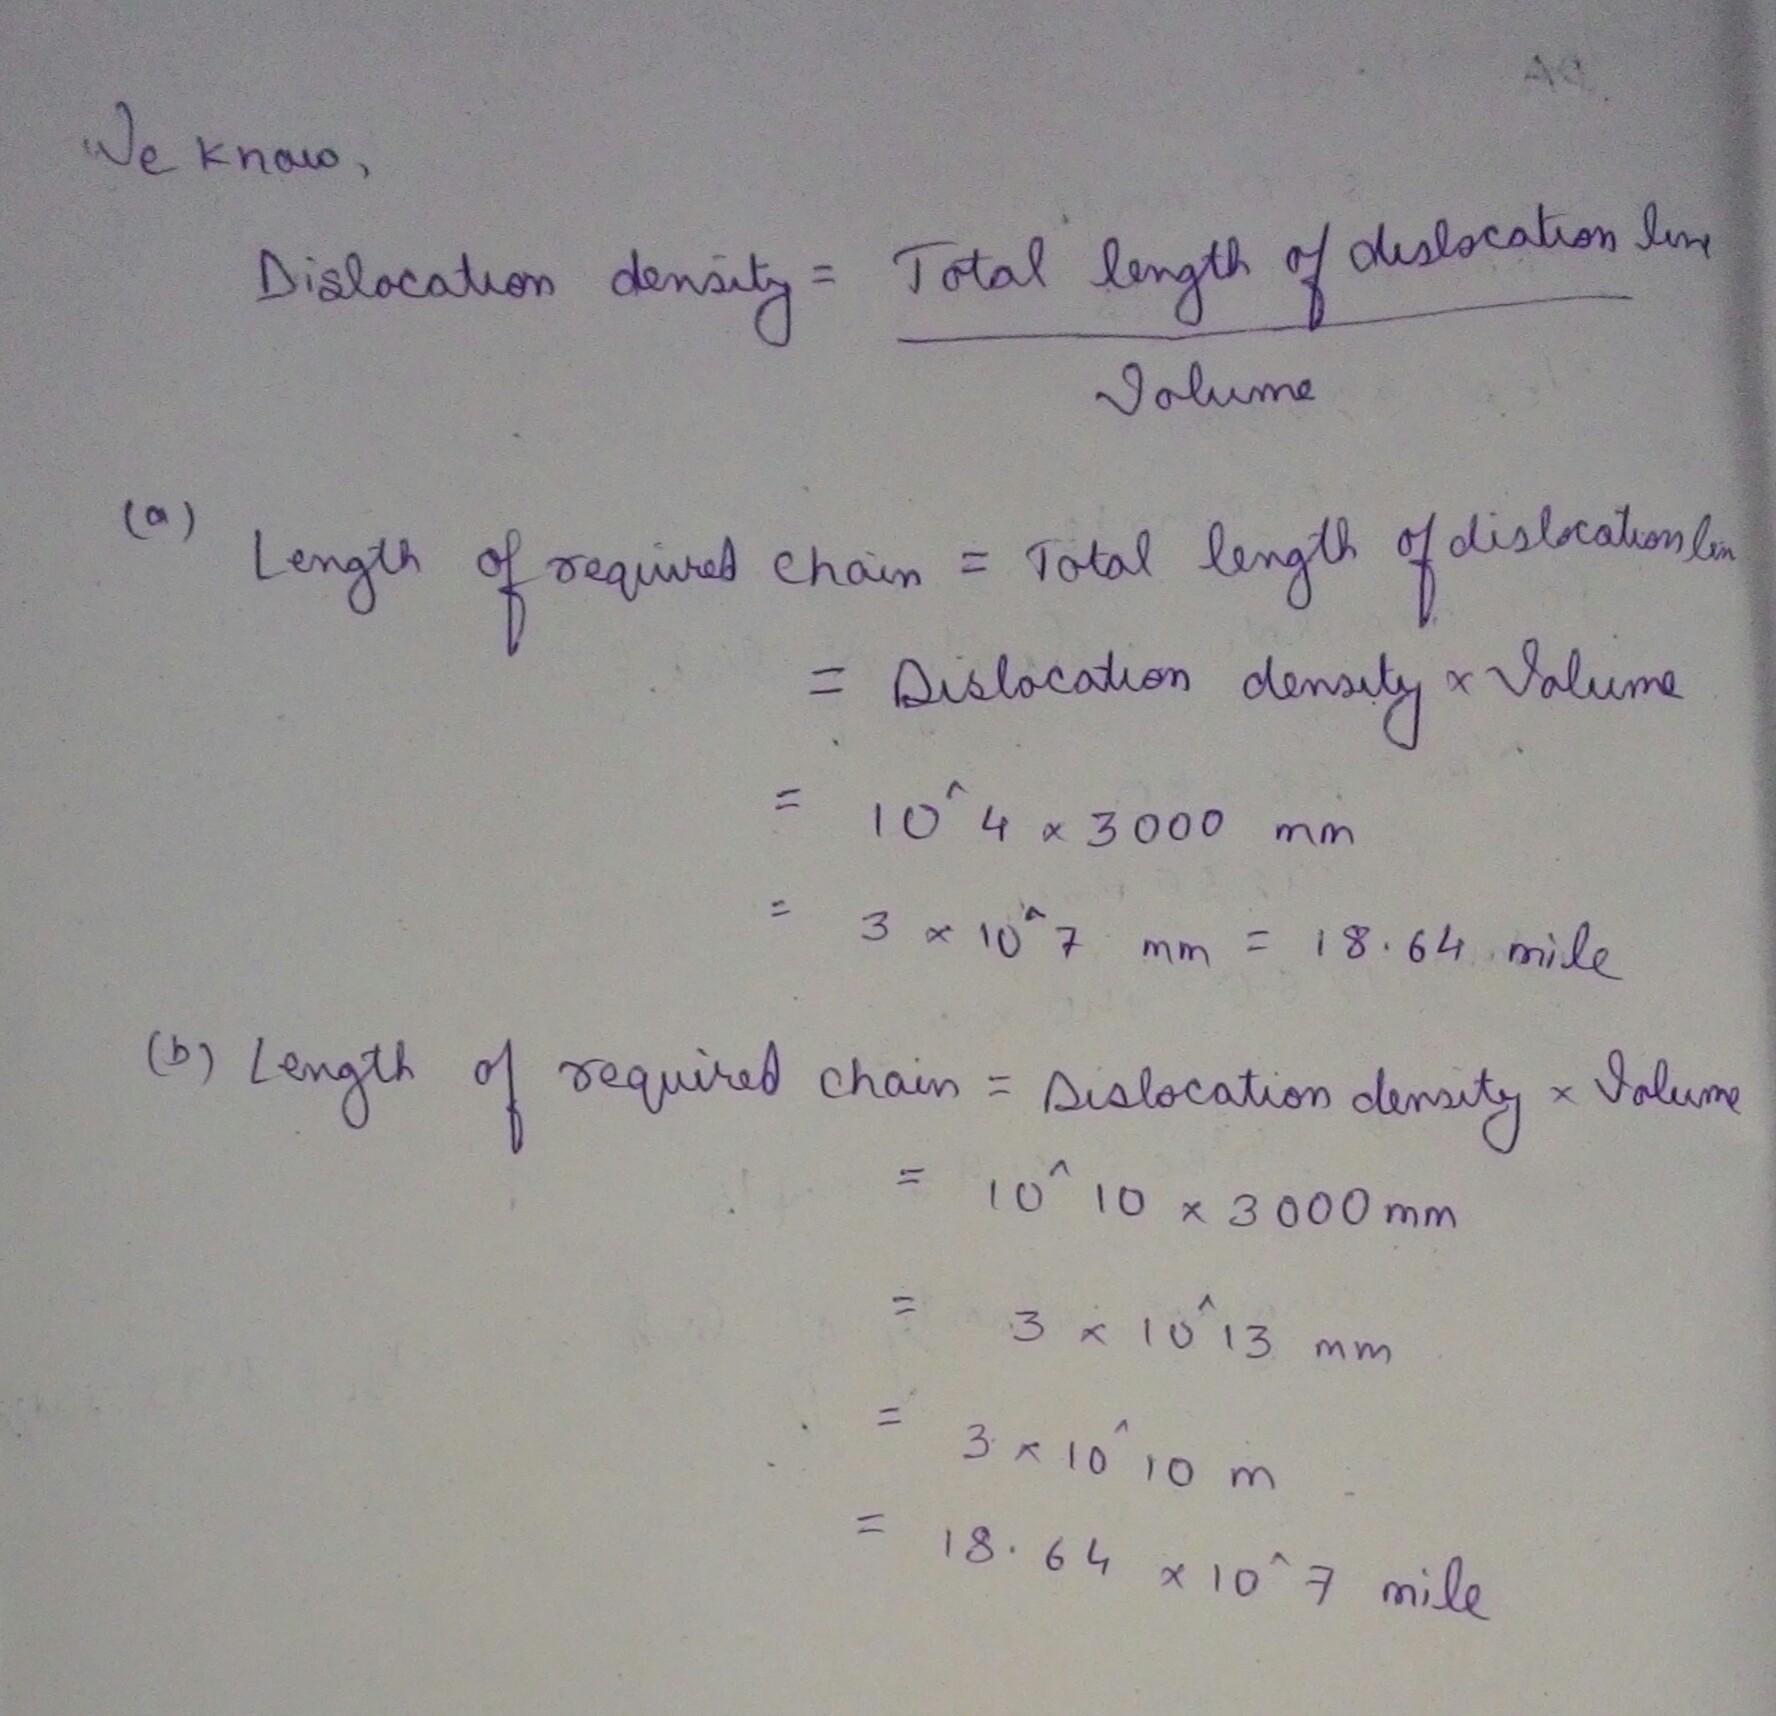 We know,
Dislocation density = Total length of dislocation line
Volume
(a)
Length of required chain = Total length of dislocation lin
= Dislocation density × Volume
= 10^4 × 3000 mm
= 3 × 10^7 mm = 18.64 mile
(b) Length of required chain = Dislocation density × Volume
= 10^10 × 3000 mm
= 3 × 10^13 mm
= 3 × 10^10 m
= 18.64 × 10^7 mile